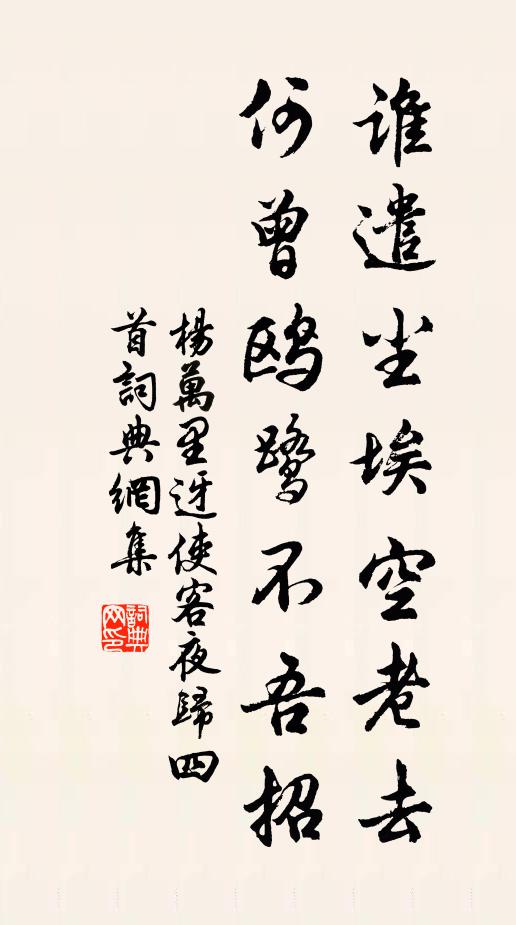 誰遣尘埃空老去
何曾鸥鷺不吾招
楊萬里迓使客夜歸四
首詞典網集
詞典
网印